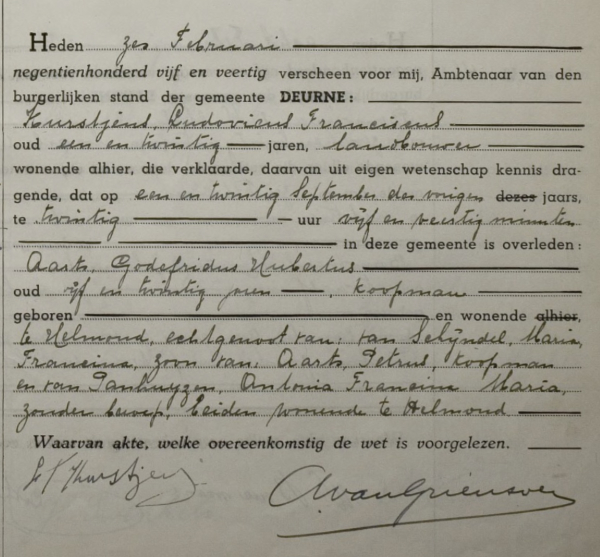 Heden zes Februari
negentienhonderd vijf en veertig verscheen voor mij, Ambtenaar van den
burgerlijken stand der gemeente DEURNE:
Kurstjens, Ludovicus Franciscus
oud een en twintig jaren, landbouwer
wonende alhier, die verklaarde, daarvan uit eigen wetenschap kennis dra-
gende, dat op een en twintig September des vorigen dezes jaars,
te twintig uur vijf en veertig minuten
in deze gemeente is overleden:
Aarts, Godefridus Hubertus
oud vijf en twintig jaren, koopman
geboren en wonende alhier,
te Helmond, echtgenoot van: van Schijndel, Maria,
Francina, zoon van: Aarts, Petrus, koopman
en van Panhuyzen, Antonia Francina Maria,
zonder beroep, beiden wonende te Helmond
Waarvan akte, welke overeenkomstig de wet is voorgelezen.
L F Kurstjens
A. van Griensven